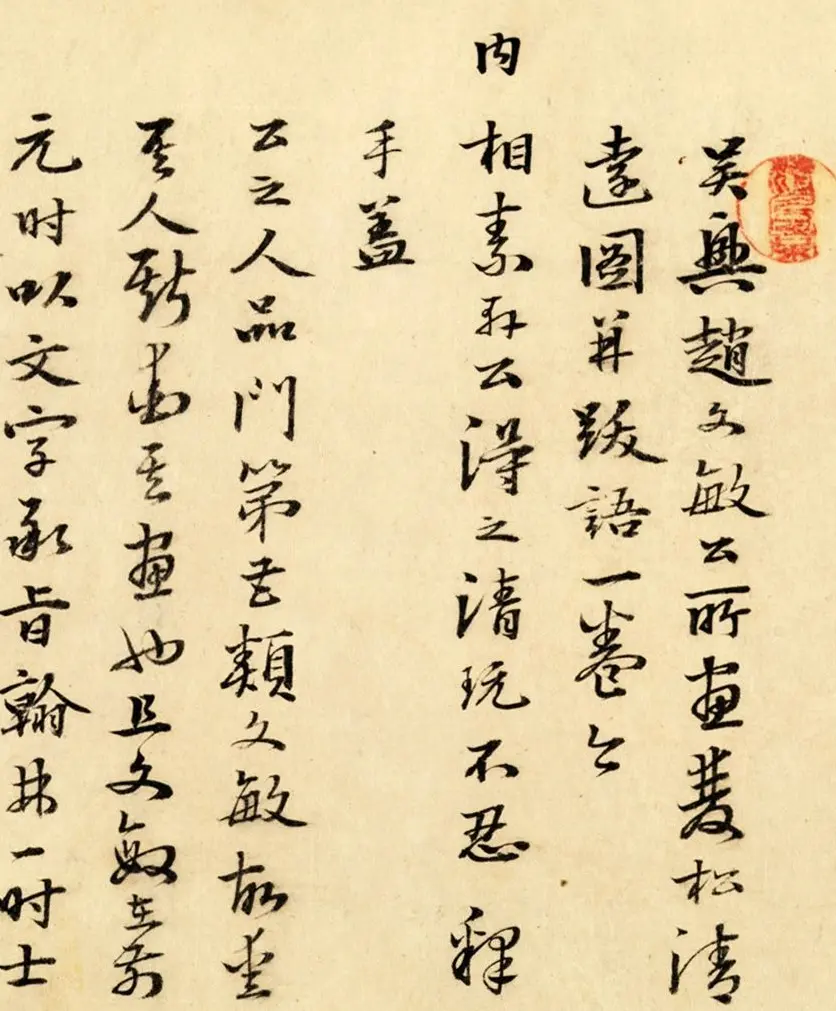 吳興趙文敏公所畫雙松清
遠圖并跋語一卷今
內相素公得之清玩不忍釋
手蓋
公之人品門第甚類文敏故愛
其人斯愛其畫也且文敏在前
元時以文字承旨翰林一時士